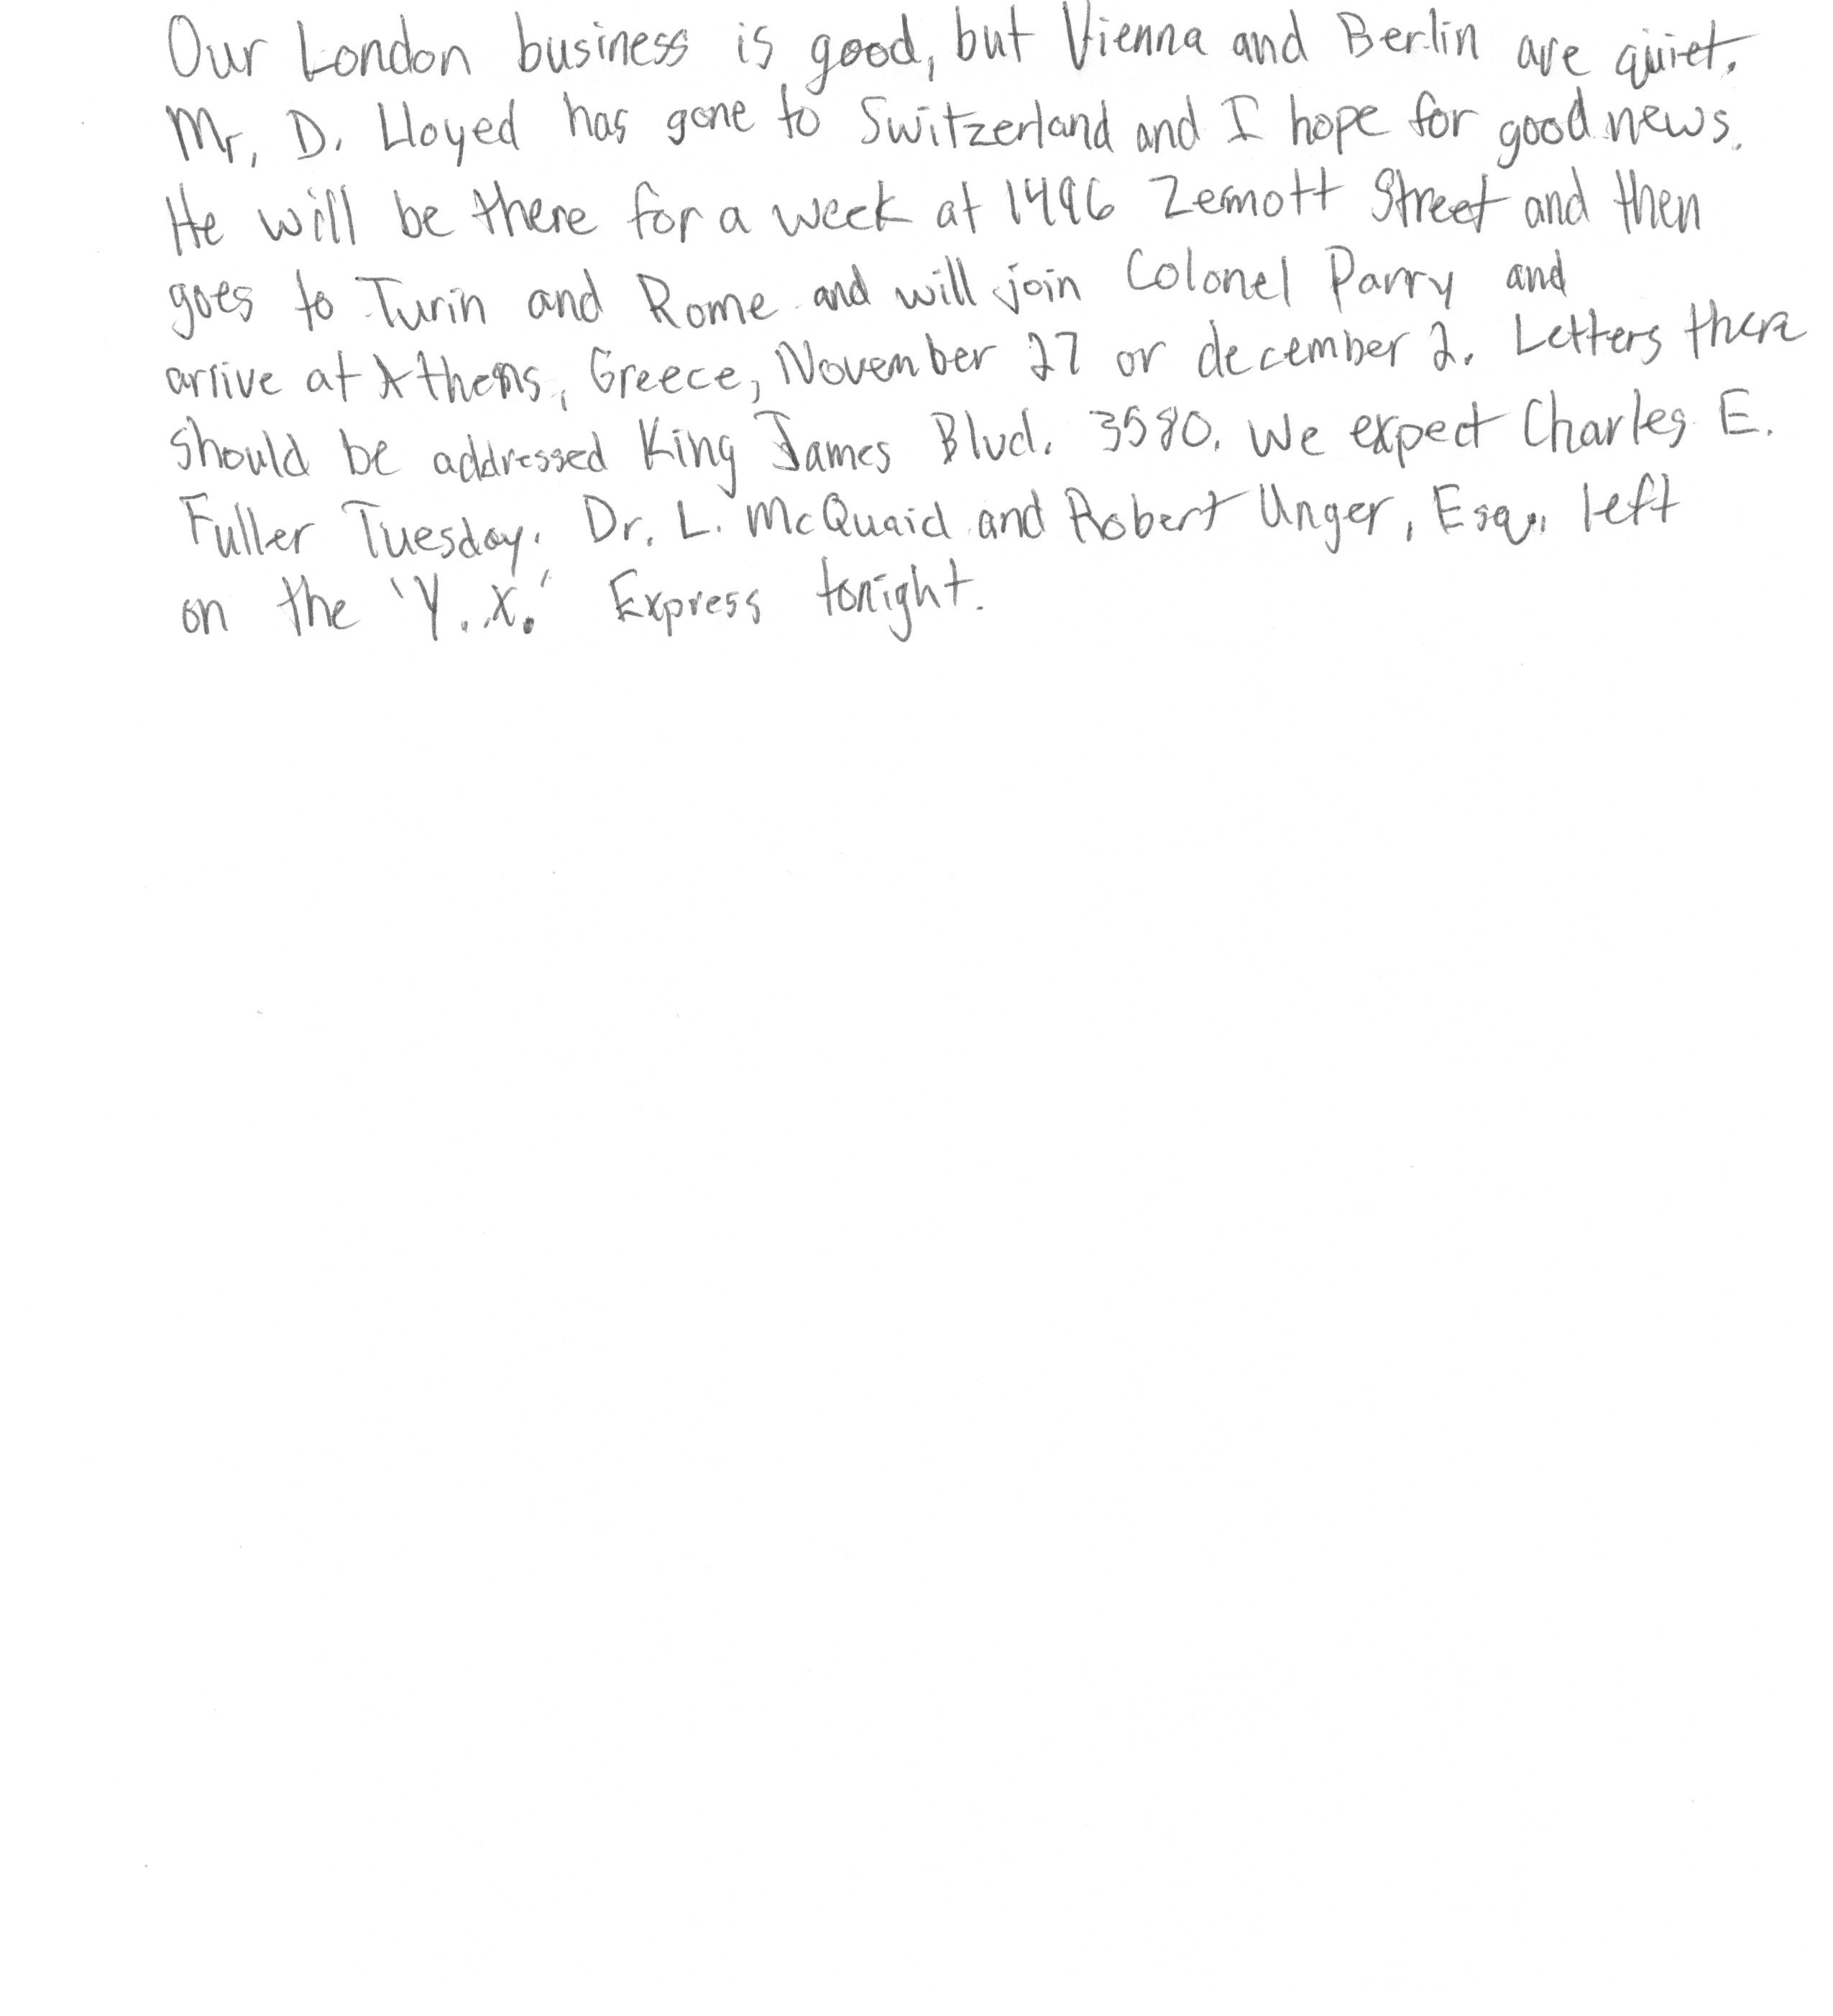 Our London business is good, but Vienna and Berlin are quiet.
Mr. D. Lloyed has gone to Switzerland and I hope for good news.
He will be there for a week at 1496 Zemott Street and then
goes to Turin and Rome and will join Colonel Parry and
arrive at Athens, Greece, November 27 or december 2. Letters there
should be addressed King James Blvd. 3580. We expect Charles E.
Fuller Tuesday. Dr. L. McQuaid and Robert Unger, Esq., left
on the 'Y. X.' Express tonight.